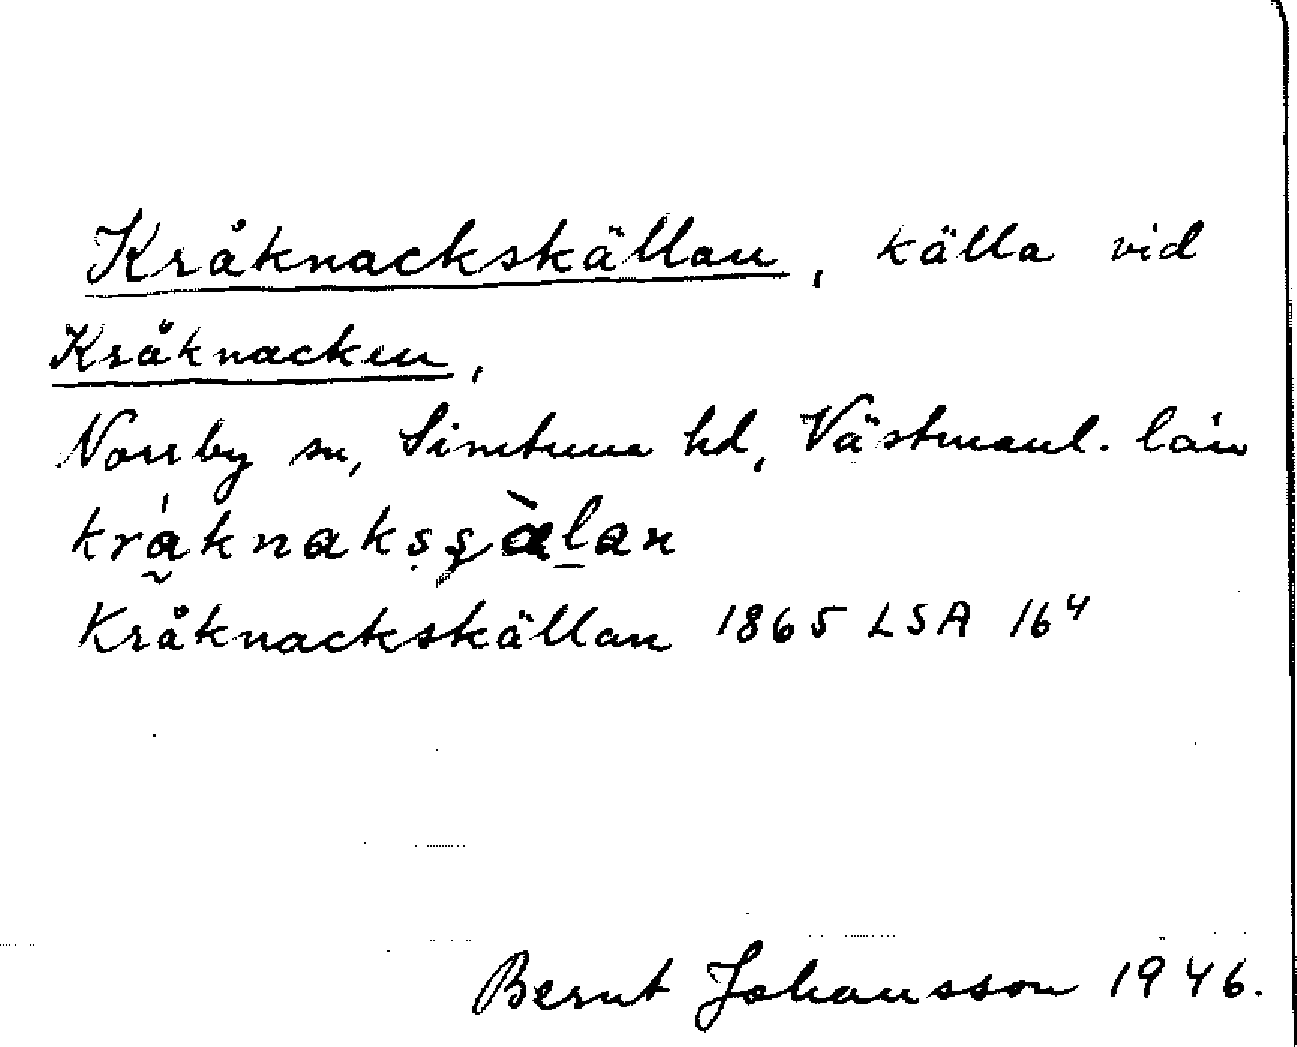 Kråknackskällan, källa vid
Kråknacken,
Norrby sn, Simtuna hd, Västmanl. län
Kråknackskällan 1865 LSA 16⁴
Bernt Johansson 1946.